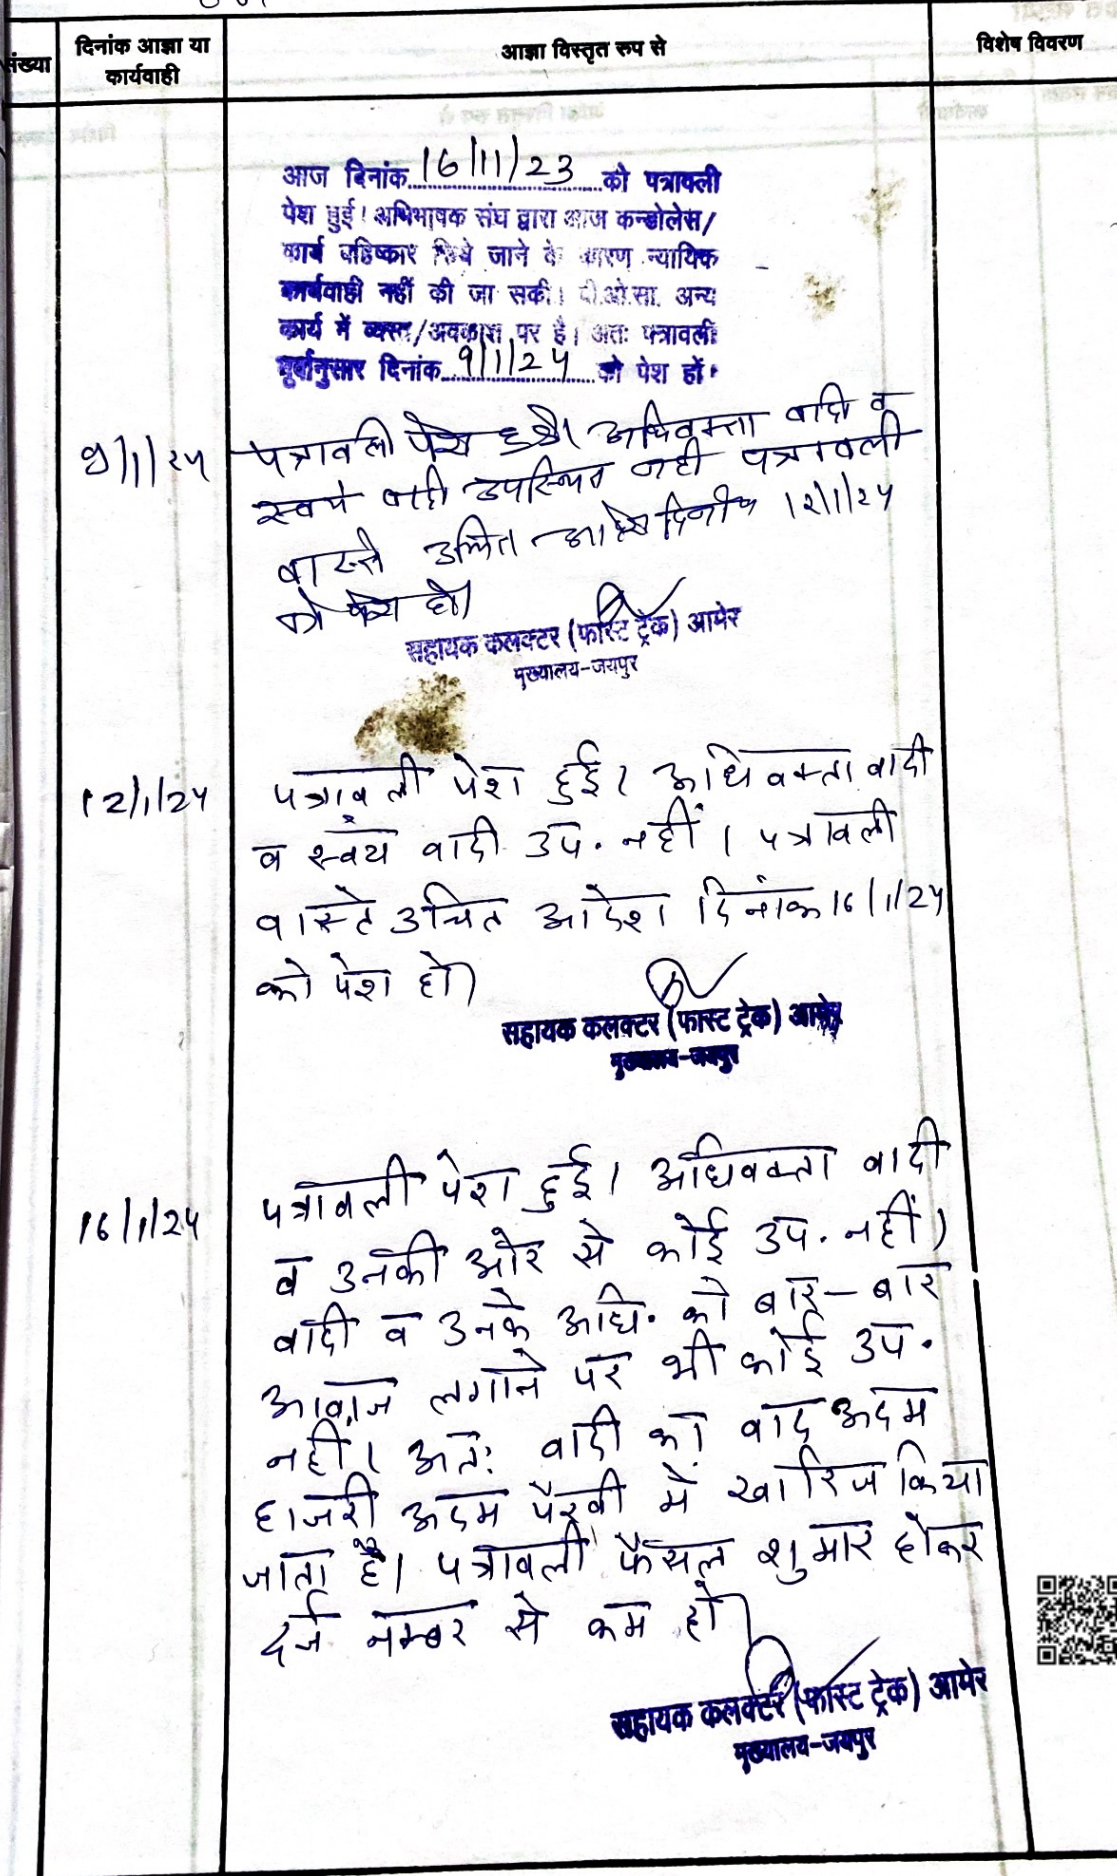 संख्या
दिनांक आज्ञा या
कार्यवाही
आज्ञा विस्तृत रूप से
विशेष विवरण
आज दिनांक 16/11/23 को पत्रावली
पेश हुई। अभिभाषक संघ द्वारा आज कन्डोलेंस/
कार्य बहिष्कार किये जाने के कारण न्यायिक
कार्यवाही नहीं की जा सकी। पी.ओ.सा. अन्य
कार्य में व्यस्त/अवकाश पर है। अतः पत्रावली
पूर्वानुसार दिनांक 9/1/24 को पेश हों।
9/1/24 पत्रावली पेश हुई। अधिवक्ता वादी व
स्वयं वादी उपस्थित नहीं पत्रावली
वास्ते उचित आदेश दिनांक 12/1/24
को पेश हो।
सहायक कलक्टर (फास्ट ट्रेक) आमेर
मुख्यालय-जयपुर
12/1/24 पत्रावली पेश हुई। अधिवक्ता वादी
व स्वंय वादी उप. नहीं। पत्रावली
वास्ते उचित आदेश दिनांक 16/1/24
को पेश हो।
सहायक कलक्टर (फास्ट ट्रेक) आमेर
मुख्यालय-जयपुर
16/1/24 पत्रावली पेश हुई। अधिवक्ता वादी
व उनकी ओर से कोई उप. नहीं।
वादी व उनके अधि. को बार-बार
आवाज लगाने पर भी कोई उप.
नहीं। अतः वादी का वाद अदम
हाजरी अदम पैरवी में खारिज किया
जाता है। पत्रावली फैसल शुमार होकर
दर्ज नम्बर से कम हो।
सहायक कलक्टर (फास्ट ट्रेक) आमेर
मुख्यालय-जयपुर